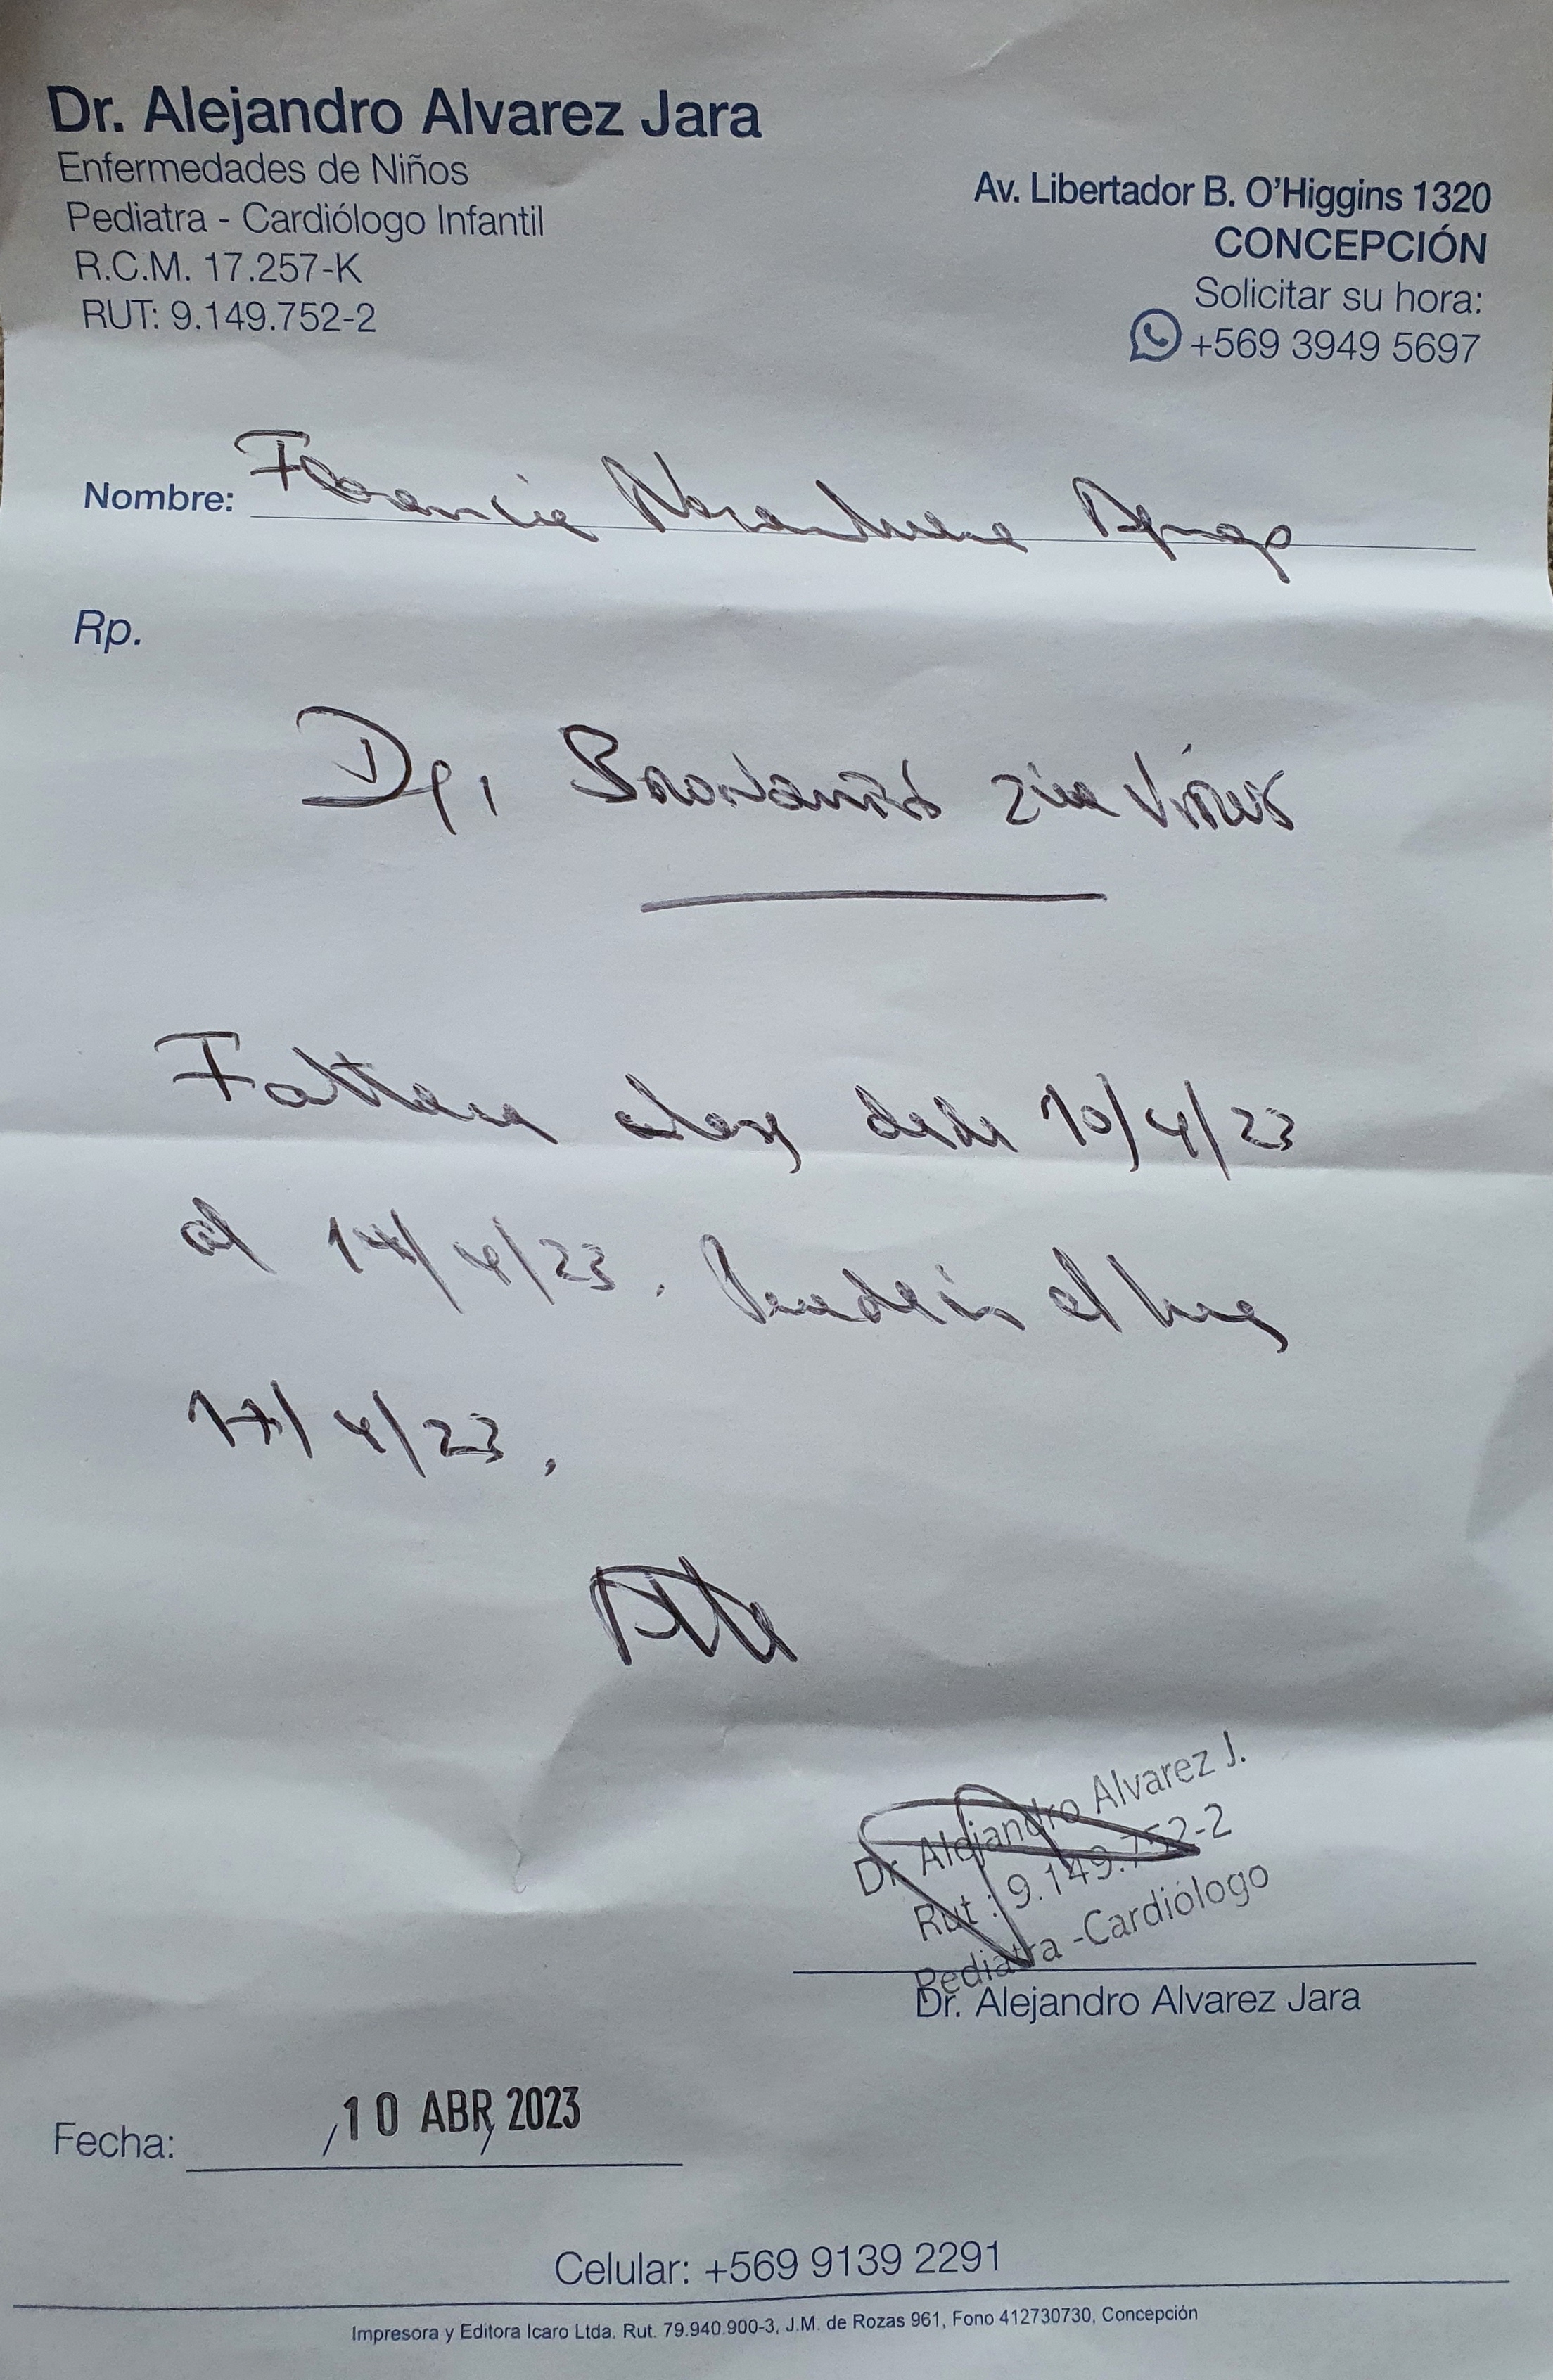 Dr. Alejandro Alvarez Jara
Enfermedades de Niños
Pediatra - Cardiólogo Infantil
R.C.M. 17.257-K
RUT: 9.149.752-2
Av. Libertador B. O'Higgins 1320
CONCEPCIÓN
Solicitar su hora:
+569 3949 5697
Nombre: Florencia
Rp.
virus
desde 10/4/23
al 14/4/23. el
17/4/23.
Dr Alejandro Alvarez J.
Rut : 9.149.752-2
Pediatra -Cardiólogo
Dr. Alejandro Alvarez Jara
Fecha: 10 ABR 2023
Celular: +569 9139 2291
Impresora y Editora Icaro Ltda. Rut. 79.940.900-3, J.M. de Rozas 961, Fono 412730730, Concepción